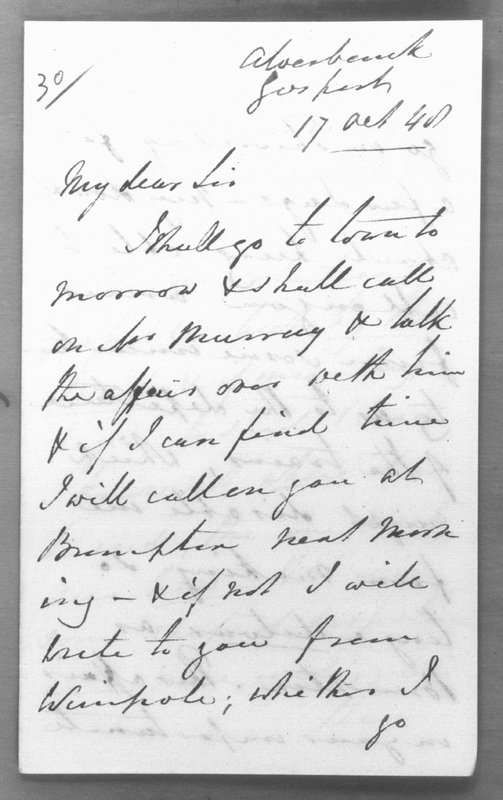 30/
Alverbank
Gosport
17 Oct 48
My dear Sir
I shall go to town to
morrow & shall call
on Mr Murray & talk
the affair over with him
& if I can find time
I will call on you at
Brompton next morn
ing – & if not I will
write to you from
Wimpole; whither I
go